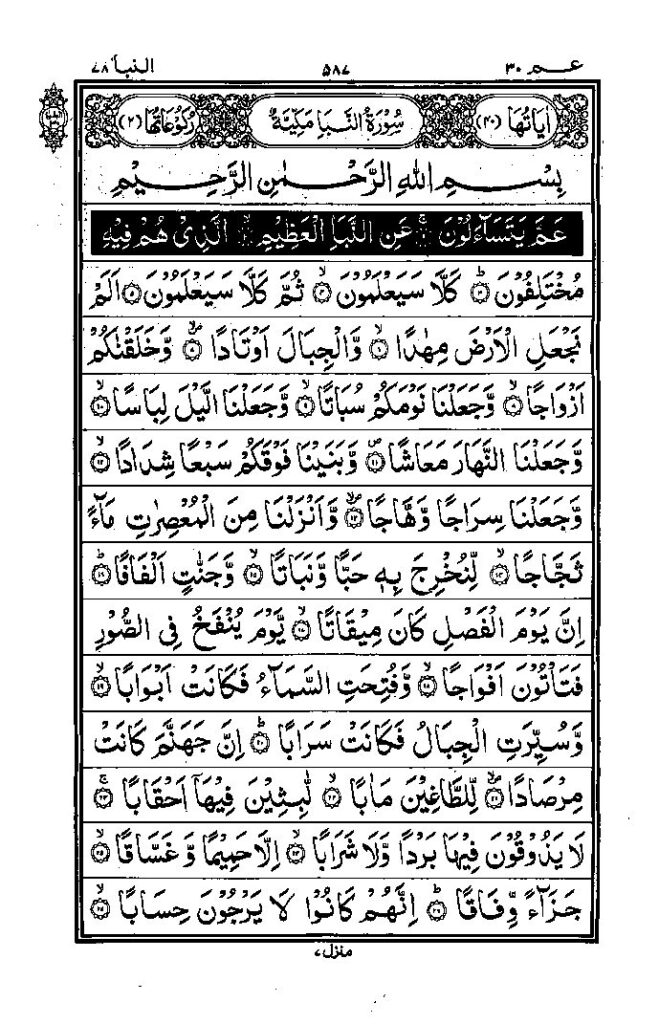 عـم ٣٠ ٥٨٧ النبأ ٧٨
اٰيَاتُهَا (٤٠) سُوْرَةُ النَّبَاِ مَكِّيَّةٌ رُكُوْعَاتُهَا (٢)
بِسْمِ اللهِ الرَّحْمٰنِ الرَّحِيْمِ
عَمَّ يَتَسَآءَلُوْنَ ۝١ عَنِ النَّبَاِ الْعَظِيْمِ ۝٢ الَّذِىْ هُمْ فِيْهِ
مُخْتَلِفُوْنَ ۝٣ كَلَّا سَيَعْلَمُوْنَ ۝٤ ثُمَّ كَلَّا سَيَعْلَمُوْنَ ۝٥ اَلَمْ
نَجْعَلِ الْاَرْضَ مِهٰدًا ۝٦ وَّالْجِبَالَ اَوْتَادًا ۝٧ وَّخَلَقْنٰكُمْ
اَزْوَاجًا ۝٨ وَّجَعَلْنَا نَوْمَكُمْ سُبَاتًا ۝٩ وَّجَعَلْنَا الَّيْلَ لِبَاسًا ۝١٠
وَّجَعَلْنَا النَّهَارَ مَعَاشًا ۝١١ وَّبَنَيْنَا فَوْقَكُمْ سَبْعًا شِدَادًا ۝١٢
وَّجَعَلْنَا سِرَاجًا وَّهَّاجًا ۝١٣ وَّاَنْزَلْنَا مِنَ الْمُعْصِرٰتِ مَآءً
ثَجَّاجًا ۝١٤ لِّنُخْرِجَ بِهٖ حَبًّا وَّنَبَاتًا ۝١٥ وَّجَنّٰتٍ اَلْفَافًا ۝١٦
اِنَّ يَوْمَ الْفَصْلِ كَانَ مِيْقَاتًا ۝١٧ يَّوْمَ يُنْفَخُ فِى الصُّوْرِ
فَتَاْتُوْنَ اَفْوَاجًا ۝١٨ وَّفُتِحَتِ السَّمَآءُ فَكَانَتْ اَبْوَابًا ۝١٩
وَّسُيِّرَتِ الْجِبَالُ فَكَانَتْ سَرَابًا ۝٢٠ اِنَّ جَهَنَّمَ كَانَتْ
مِرْصَادًا ۝٢١ لِّلطَّاغِيْنَ مَاٰبًا ۝٢٢ لّٰبِثِيْنَ فِيْهَآ اَحْقَابًا ۝٢٣
لَا يَذُوْقُوْنَ فِيْهَا بَرْدًا وَّلَا شَرَابًا ۝٢٤ اِلَّا حَمِيْمًا وَّغَسَّاقًا ۝٢٥
جَزَآءً وِّفَاقًا ۝٢٦ اِنَّهُمْ كَانُوْا لَا يَرْجُوْنَ حِسَابًا ۝٢٧
منزل ٧